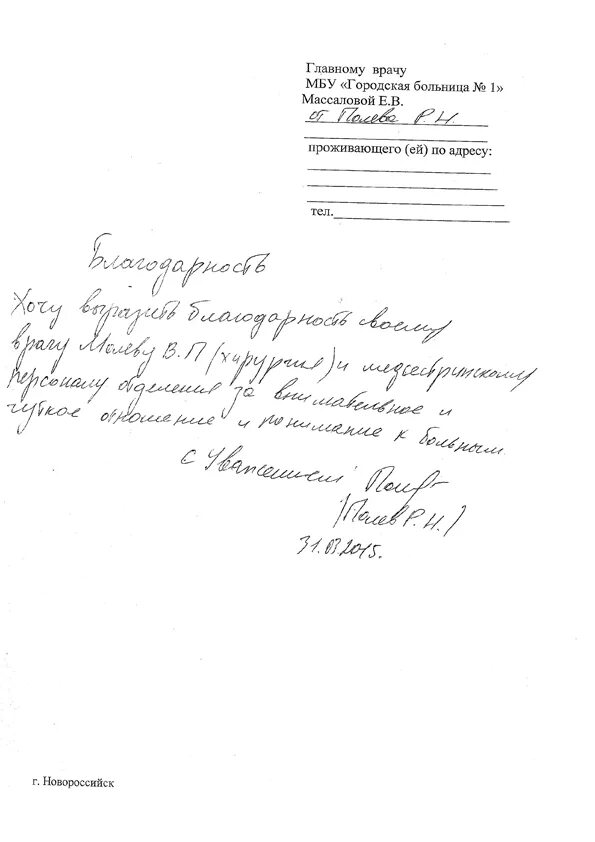 Главному врачу
МБУ «Городская больница № 1»
Массаловой Е.В.
от Полева Р. Н.
проживающего (ей) по адресу:
тел.
Благодарность
Хочу выразить благодарность своему
врачу Молеву В.П (хирургия) и медсестринскому
персоналу отделения за внимательное и
чуткое отношение и понимание к больным.
С Уважением
/Полев Р. Н./
31.03.2015.
г. Новороссийск